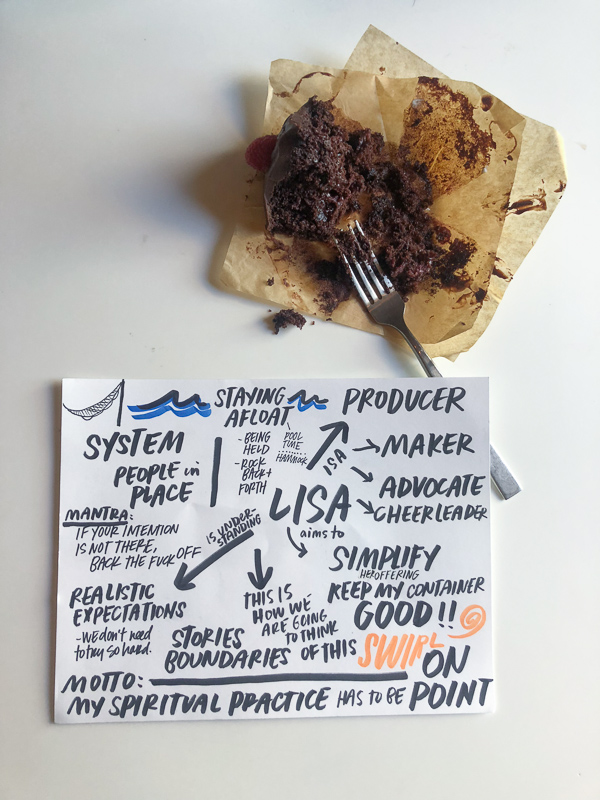 STAYING
AFLOAT
PRODUCER
SYSTEM
PEOPLE in
PLACE
- BEING
HELD
- ROCK
BACK +
FORTH
POOL
TIME
HAMMOCK
IS A
MAKER
ADVOCATE
CHEERLEADER
LISA
MANTRA:
IF YOUR INTENTION
IS NOT THERE,
BACK THE FUCK OFF
IS UNDER-
STANDING
aims to
SIMPLIFY
HER OFFERING
KEEP MY CONTAINER
GOOD!!
REALISTIC
EXPECTATIONS
- WE don't need
to try so hard.
THIS IS
HOW WE
ARE GOING
TO THINK
OF THIS
STORIES
BOUNDARIES
SWIRL
MOTTO:
MY SPIRITUAL PRACTICE HAS TO BE
ON
POINT